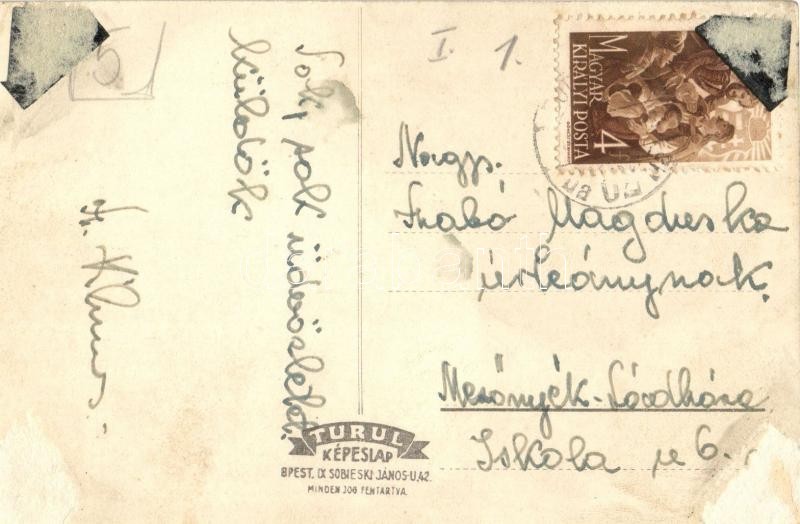 I. 1.
MAGYAR
KIRÁLYI POSTA
4f
Nagys.
Szabó Magduska
úrleánynak.
Mezőnyék-Ládháza
Iskola u 6.
Sok, sok üdvözletet
küldök
TURUL
KÉPESLAP
BPEST. IX SOBIESKI JÁNOS-U.42.
MINDEN JOG FENTARTVA.